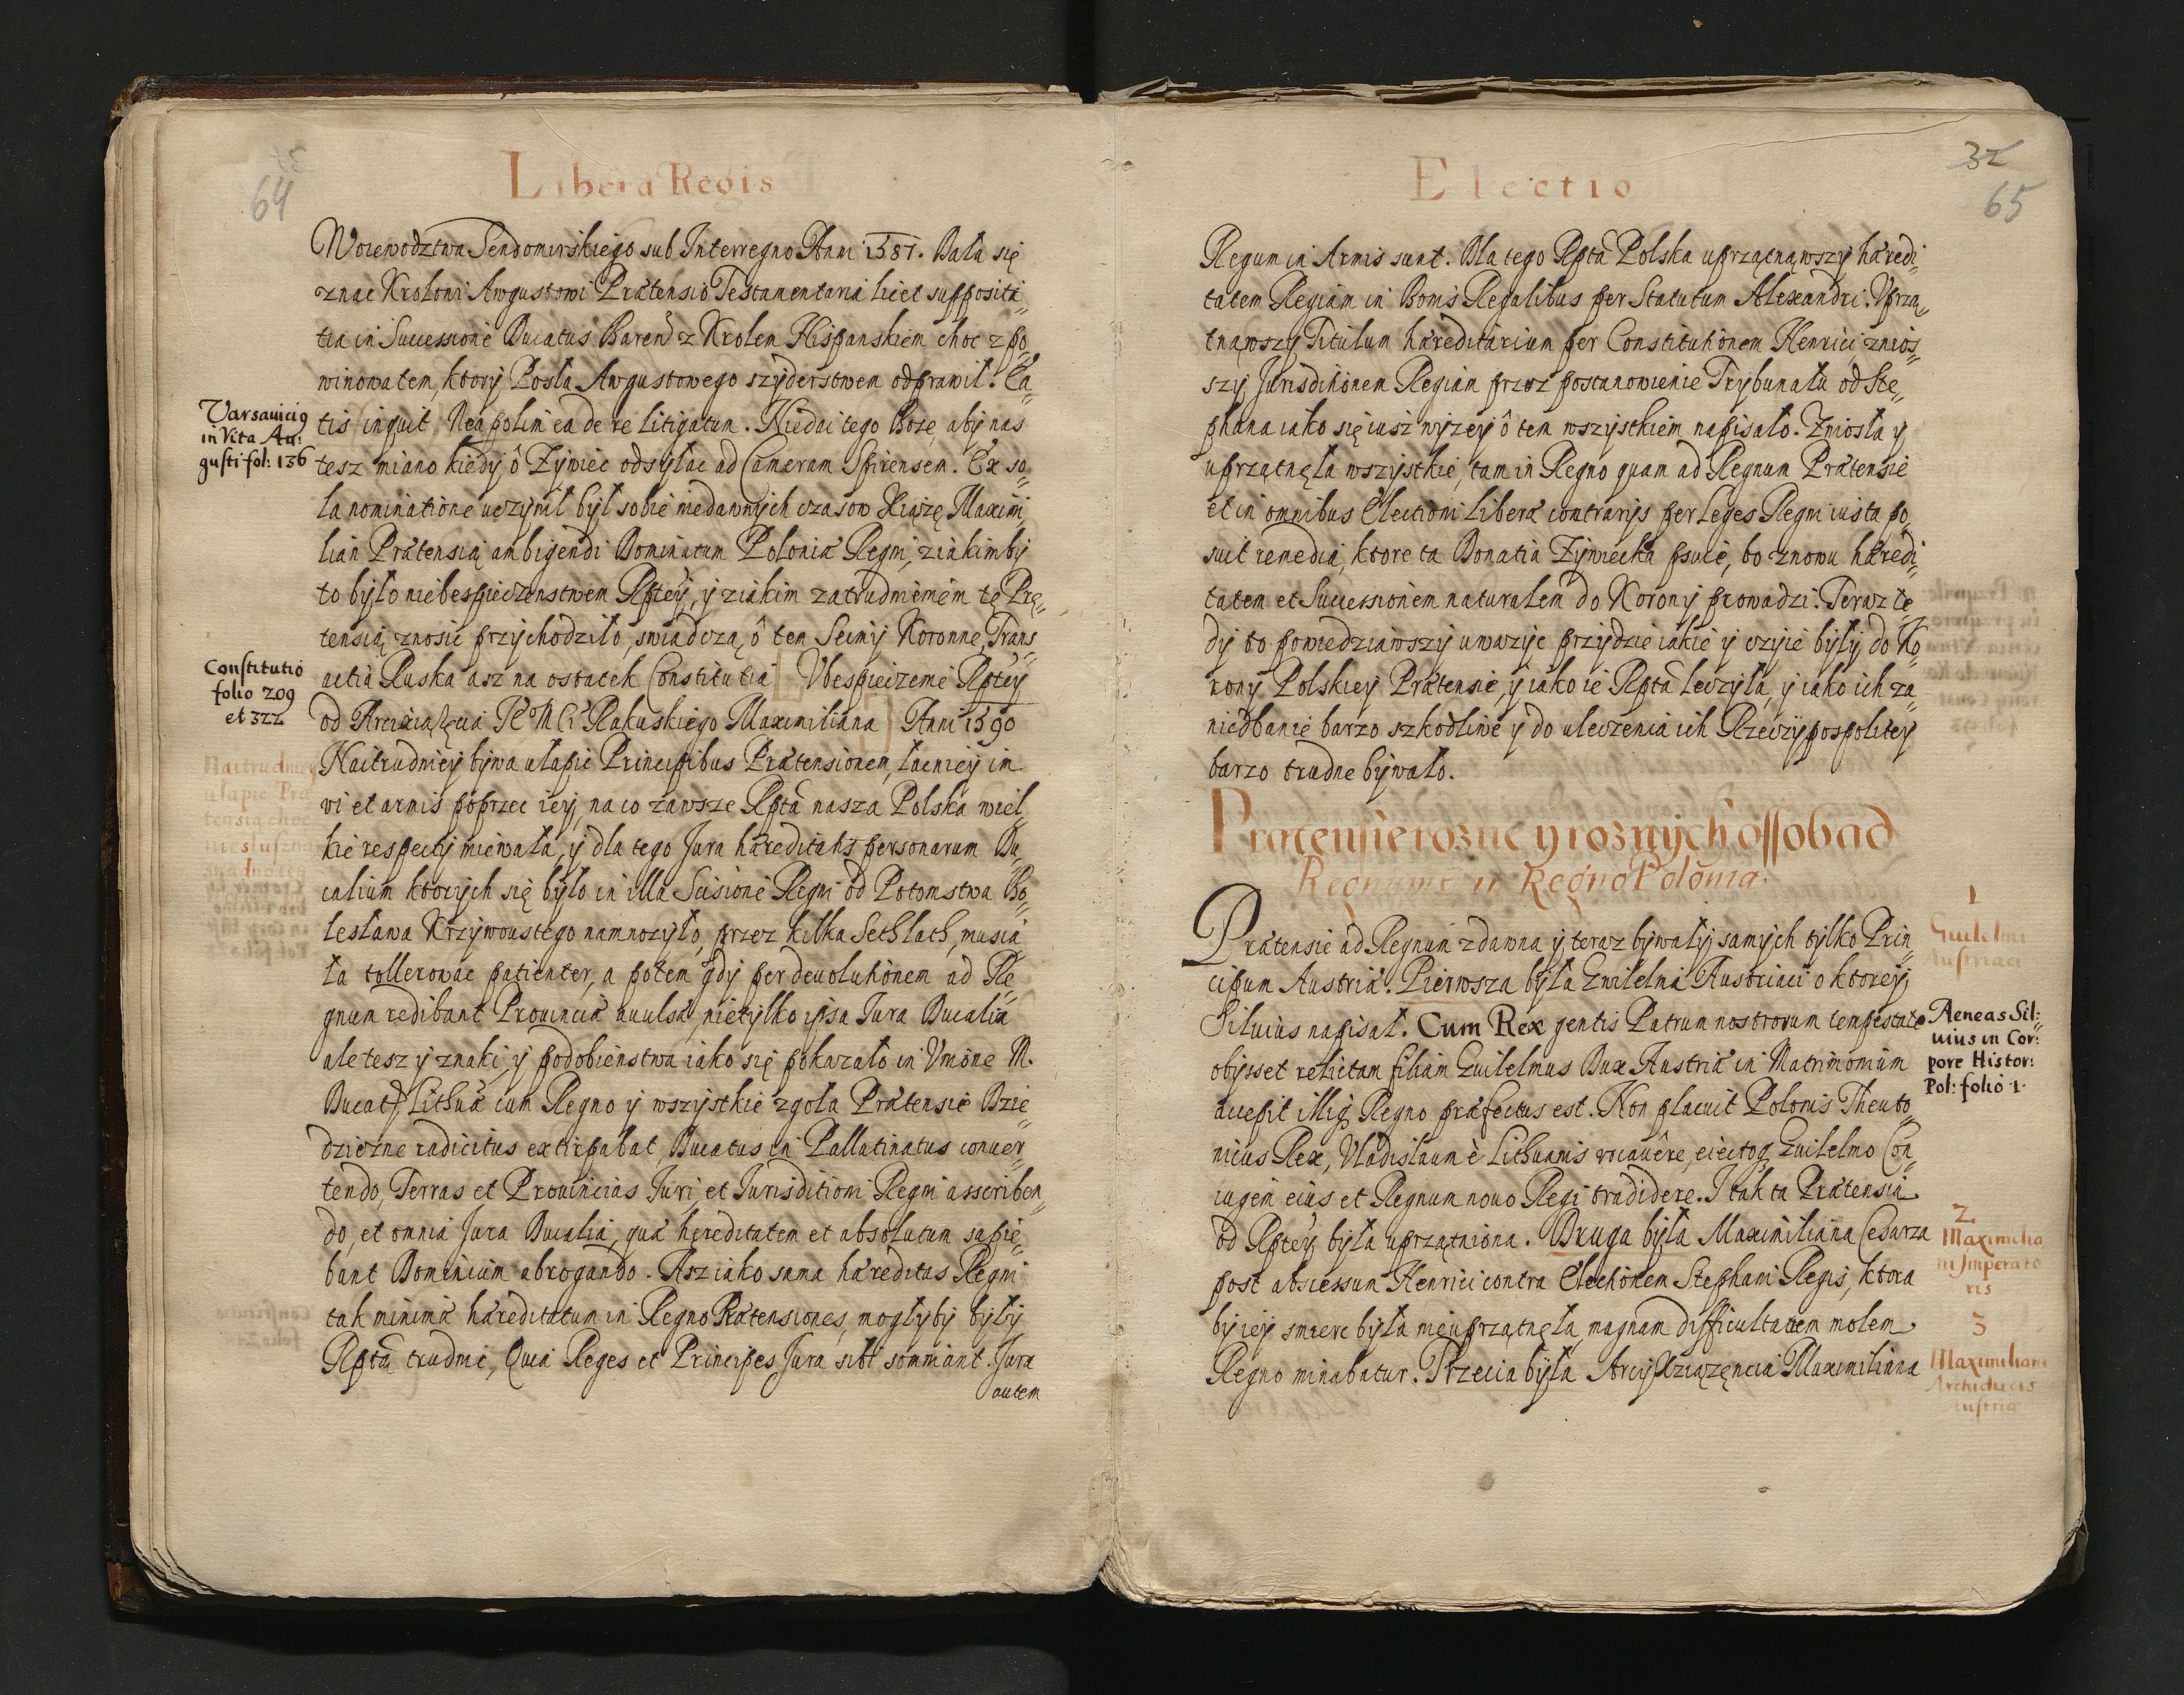 64
Libera Regis
Woiewodztwa Sendomirskiego sub Interregno Anni 1587. Dała się
znać Krolowi Awgustowi Prætensio Testamentaria licet supposita
tia in Successione Ducatus Baren z Krolem Hispanskiem choć z po„
winowatem, ktory Posła Awgustowego szyderstwem odprawił. Ea„
tis inquit, Neapolim ea de re litigatum. Niedai tego Boże, aby nas
tesz miano kiedy ô Zywiec odsyłac ad Cameram Spirensem. Ex so„
la nominatione uczynił był sobie niedawnych czasow Xiążę Maximi„
lian Prætensią ambigendi Dominatum Poloniæ Regni, z iakimby
to było niebespieczenstwem Rptey, y z iakim zatrudnieniem tę Præ„
tensią znosić przychodziło, swiadczą ô tem Seimy Koronne, Trans„
actia Ruska asz na ostatek Constitutia Vbespieczenie Rptey
od Arcixiążęcia Je° M Ci Rakuskiego Maximiliana Anni 1590
Naitrudniey bywa ułapić Principibus Prætensionem, łacniey im
vi et armis poprzec iey, na co zawsze Rpta nasza Polska wiel„
kie respecty miewała, y dla tego Jura hæreditatis personarum Du„
calium ktorych się było in illa Scisione Regni od Potomstwa Bo„
lesława Krzywoustego namnożyło, przez kilka Seth lath, musia„
ła tollerowac patienter, a potem gdy per deuolutionem ad Re„
gnum redibant Prouinciæ auulsæ, nietylko ipsa Jura Ducalia
ale tesz y znaki y podobienstwa iako się pokazało in Vnione M.
Ducat9 Lithuæ cum Regno y wszystkie zgoła Prætensie Dzie„
dziczne radicitus extirpabat, Ducatus in Pallatinatus conuer„
tendo, Terras et Prouincias Juri et Jurisditioni Regni asscriben„
do, et omnia Jura Ducalia, quæ hereditatem et absolutum sapie„
bant Dominium abrogando. Asz iako sama hæreditas Regni
tak minimæ hæreditatum in Regno Prætensiones, mogłyby były
Rptą trudnić, Quia Reges et Principes Jura sibi somniant. Jura
autem
Varsauici9
in Vita Au:
gusti fol: 136
Constitutio
folio 209
et 322
Naitrudniey
ułapic Præ
tensią choc
niesłuszną
32
65
Electio
Regum in Armis sunt. Dla tego Rpta Polska uprzątnąwszy hæredi„
tatem Regiam in Bonis Regalibus per Statutum Alexandri. Vprzą„
tnąwszy Titulum hæreditarium per Constitutionem Henrici, zniós„
szy Jurisditionem Regiam przez postanowienie Trybunału od Ste„
phana iako się iusz wyzey ô tem wszystkiem napisało. Zniosła y
uprzątnęła wszystkie, tam in Regno quam ad Regnum Prætensie
et in omnibus Electioni Liberæ contrarijs per Leges Regni iusta po„
suit remedia, ktore ta Donatia Zywiecka psuie, bo znowu hæredi„
tatem et Successionem naturalem do Korony prowadzi. Teraz te„
dy to powiedziawszy uważyc przydzie iakie y czyie były do Ko„
rony Polskiey Prætensie, y iako ie Rpta leczyła, y iako ich za„
niedbanie barzo szkodliwe y do uleczenia ich Rzeczypospolitey
barzo trudne bywało.
Prætensie rozne y roznych ossob ad
Regnum et in Regno Poloniæ.
Prætensie ad Regnum zdawna y teraz bywały samych tylko Prin„
cipum Austriæ. Pierwsza była Guilelma Austriaci o ktorey
Siluius napisał. Cum Rex gentis Patrum nostrorum tempestate
obijsset relictam filiam Guilelmus Dux Austriæ in Matrimonium
accepit illiq Regno præfectus est. Non placuit Polonis Theuto„
nicus Rex, Vladislaum è Lithuanis vocauêre, eiectoq Guilelmo Con„
iugem eius et Regnum nouo Regi tradidere. I tak ta Prætensia
od Rptey była uprzątniona. Druga była Maximiliana Cesarza
post abscessum Henrici contra Electionem Stephani Regis, ktora
by iey smierc była nieuprzątnęła, magnam difficultatem molem
Regno minabatur. Trzecia była ArcyXziążęncia Maximiliana
1
Guilelmi
Austriaci
Aeneas Sil:
uius in Cor:
pore Histor:
Pol: folio 1
2
Maximilia
ni Imperato
ris
3
Maximiliani
Archiducis
Austriæ